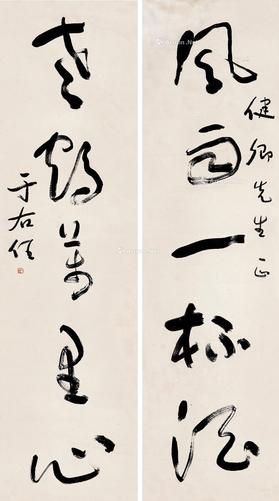 風雨一杯酒
健卿先生正
老鶴萬里心
于右任